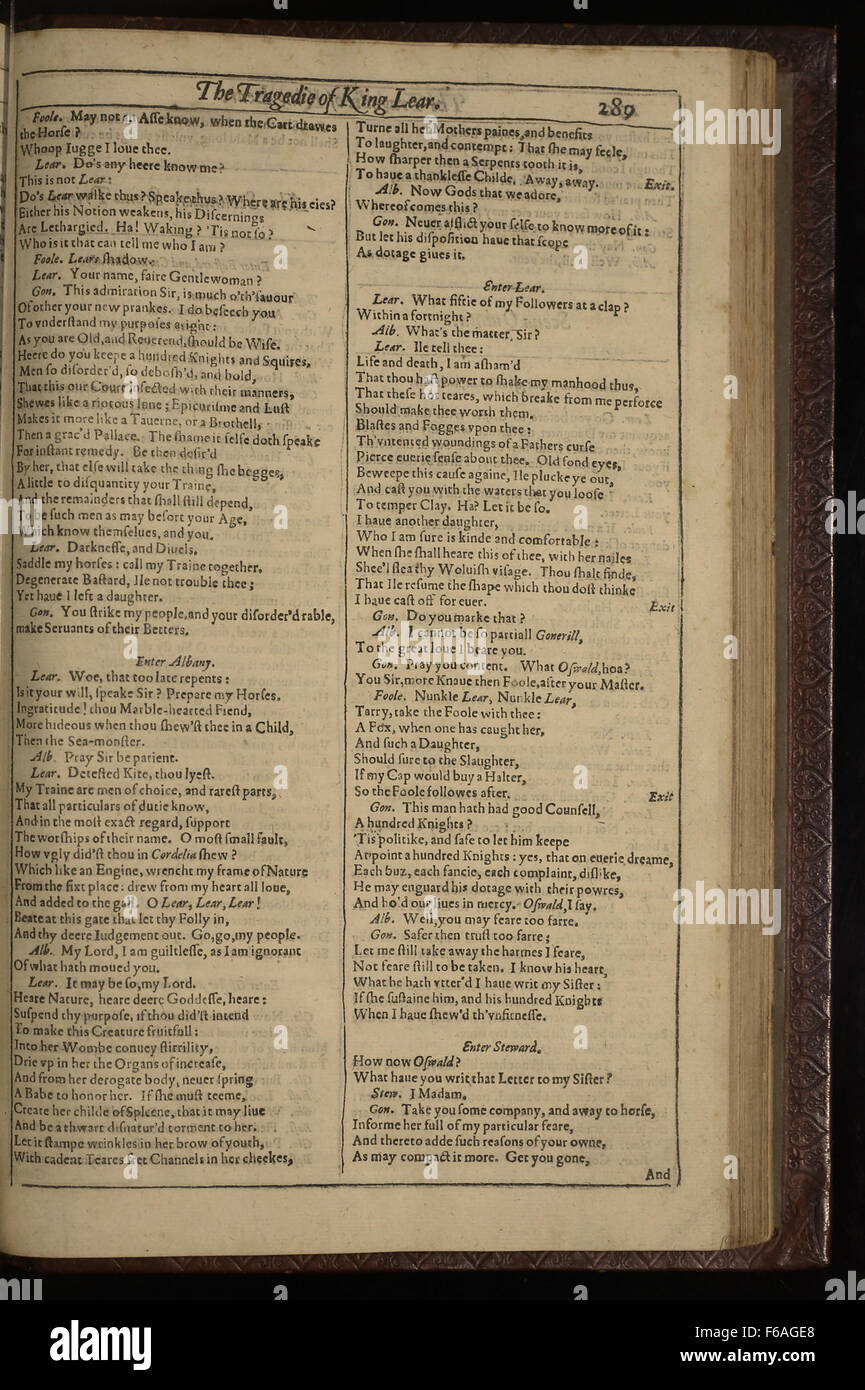 The Tragedie of King Lear.
289
Foole. May not an Aſſe know, when the Cart drawes
the Horſe?
Whoop Iugge I loue thee.
Lear. Do's any heere know me?
This is not Lear:
Do's Lear walke thus? Speake thus? Where are his eies?
Either his Notion weakens, his Diſcernings
Are Lethargied. Ha! Waking? 'Tis not ſo?
Who is it that can tell me who I am?
Foole. Lears ſhadow.
Lear. Your name, faire Gentlewoman?
Gon. This admiration Sir, is much o'th'ſauour
Of other your new prankes. I do beſeech you
To vnderſtand my purpoſes aright:
As you are Old, and Reuerend, ſhould be Wiſe.
Heere do you keepe a hundred Knights and Squires,
Men ſo diſorder'd, ſo deboſh'd, and bold,
That this our Court infected with their manners,
Shewes like a riotous Inne; Epicuriſme and Luſt
Makes it more like a Tauerne, or a Brothell,
Then a grac'd Pallace. The ſhame it ſelfe doth ſpeake
For inſtant remedy. Be then deſir'd
By her, that elſe will take the thing ſhe begges,
A little to diſquantity your Traine,
And the remainders that ſhall ſtill depend,
To be ſuch men as may beſort your Age,
Which know themſelues, and you.
Lear. Darkneſſe, and Diuels.
Saddle my horſes: call my Traine together.
Degenerate Baſtard, Ile not trouble thee;
Yet haue I left a daughter.
Gon. You ſtrike my people, and your diſorder'd rable,
make Seruants of their Betters.
Enter Albany.
Lear. Woe, that too late repents:
Is it your will, ſpeake Sir? Prepare my Horſes.
Ingratitude! thou Marble-hearted Fiend,
More hideous when thou ſhew'ſt thee in a Child,
Then the Sea-monſter.
Alb. Pray Sir be patient.
Lear. Deteſted Kite, thou lyeſt.
My Traine are men of choice, and rareſt parts,
That all particulars of dutie know,
And in the moſt exact regard, ſupport
The worſhips of their name. O moſt ſmall fault,
How vgly did'ſt thou in Cordelia ſhew?
Which like an Engine, wrencht my frame of Nature
From the fixt place: drew from my heart all loue,
And added to the gall. O Lear, Lear, Lear!
Beate at this gate that let thy Folly in,
And thy deere Iudgement out. Go, go, my people.
Alb. My Lord, I am guiltleſſe, as I am ignorant
Of what hath moued you.
Lear. It may be ſo, my Lord.
Heare Nature, heare deere Goddeſſe, heare:
Suſpend thy purpoſe, if thou did'ſt intend
To make this Creature fruitfull:
Into her Wombe conuey ſtirrility,
Drie vp in her the Organs of increaſe,
And from her derogate body, neuer ſpring
A Babe to honor her. If ſhe muſt teeme,
Create her childe of Spleene, that it may liue
And be a thwart diſnatur'd torment to her.
Let it ſtampe wrinkles in her brow of youth,
With cadent Teares fret Channels in her cheekes,
Turne all her Mothers paines, and benefits
To laughter, and contempt: That ſhe may feele,
How ſharper then a Serpents tooth it is,
To haue a thankleſſe Childe. Away, away. Exit.
Alb. Now Gods that we adore,
Whereof comes this?
Gon. Neuer afflict your ſelfe to know more of it:
But let his diſpoſition haue that ſcope
As dotage giues it.
Enter Lear.
Lear. What fiftie of my Followers at a clap?
Within a fortnight?
Alb. What's the matter, Sir?
Lear. Ile tell thee:
Life and death, I am aſham'd
That thou haſt power to ſhake my manhood thus,
That theſe hot teares, which breake from me perforce
Should make thee worth them.
Blaſtes and Fogges vpon thee:
Th'vntented woundings of a Fathers curſe
Pierce euerie ſenſe about thee. Old fond eyes,
Beweepe this cauſe againe, Ile plucke ye out,
And caſt you with the waters that you looſe
To temper Clay. Ha? Let it be ſo.
I haue another daughter,
Who I am ſure is kinde and comfortable:
When ſhe ſhall heare this of thee, with her nailes
Shee'l flea thy Woluiſh viſage. Thou ſhalt finde,
That Ile reſume the ſhape which thou doſt thinke
I haue caſt off for euer. Exit
Gon. Do you marke that?
Alb. I cannot be ſo partiall Gonerill,
To the great loue I beare you.
Gon. Pray you content. What Oſwald, hoa?
You Sir, more Knaue then Foole, after your Maſter.
Foole. Nunkle Lear, Nunkle Lear,
Tarry, take the Foole with thee:
A Fox, when one has caught her,
And ſuch a Daughter,
Should ſure to the Slaughter,
If my Cap would buy a Halter,
So the Foole followes after. Exit
Gon. This man hath had good Counſell,
A hundred Knights?
'Tis politike, and ſafe to let him keepe
At point a hundred Knights: yes, that on euerie dreame,
Each buz, each fancie, each complaint, diſlike,
He may enguard his dotage with their powres,
And ho'd our liues in mercy. Oſwald, I ſay.
Alb. Well, you may feare too farre.
Gon. Safer then truſt too farre;
Let me ſtill take away the harmes I feare,
Not feare ſtill to be taken. I know his heart,
What he hath vtter'd I haue writ my Siſter:
If ſhe ſuſtaine him, and his hundred Knights
When I haue ſhew'd th'vnfitneſſe.
Enter Steward.
How now Oſwald?
What haue you writ that Letter to my Siſter?
Stew. I Madam.
Gon. Take you ſome company, and away to horſe,
Informe her full of my particular feare,
And thereto adde ſuch reaſons of your owne,
As may compact it more. Get you gone,
And
alamy stock photo
F6AGE8
www.alamy.com